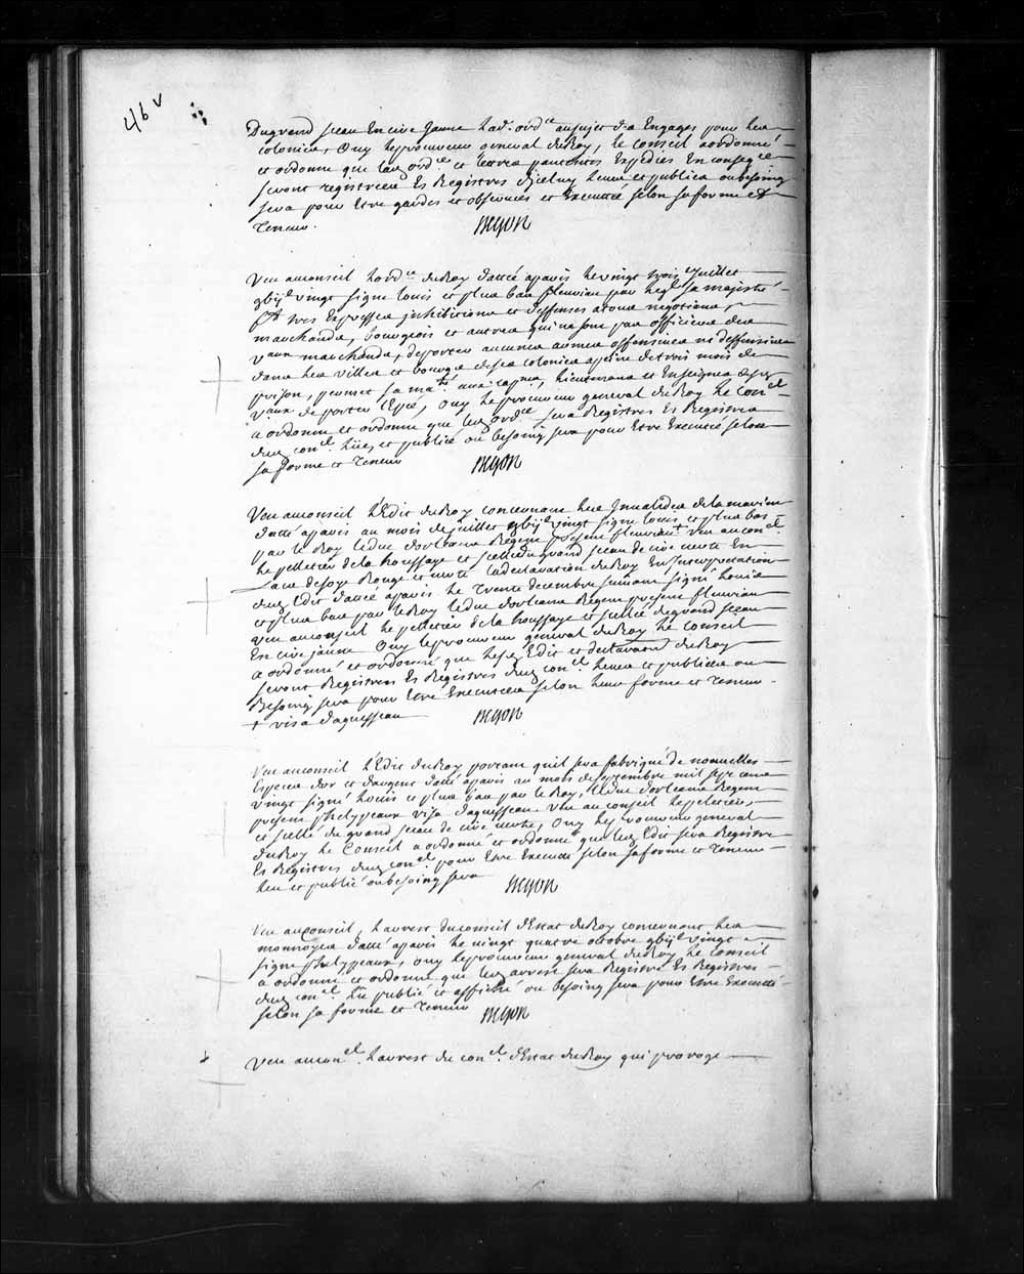 46v
Du grand sceau En cire Jaune lad. ordce au sujet des Engagés pour les
colonies, Ouy le procureur general du Roy, le Conseil a ordonné
et ordonne que lesd ordces et lettres pattentes Expediés En conseqce
seront registrées Es Registres diceluy leues et publiés ou besoing
sera pour Estre gardés et observés et Executté selon sa forme Et
Teneur.
Begon
Veu au conseil lordce du Roy datté a paris le vingt trois Juillet
gbijC vingt signé louis et plus bas fleuriau par laql sa majesté
fait tres Expresses jnhibitions et deffenses a tous negotians,
marchands, bourgeois et autres qui ne sont pas officiers des
Vaux marchands, de porter aucunes armes offensives ni deffensives
dans les villes et bourgs desd colonies a peine de trois mois de
prison, permet sa maté aux capnes, lieutenans et Enseignes desd
Vaux de porter l'Epée, Ouy le procureur general du Roy le Conel
a ordonné et ordonne que lad ordce sera Registrée Es Registres
dud conel lüe, et publié ou besoing sera pour Estre Executté selon
sa forme et Teneur
Begon
Veu au conseil l'Edit du Roy concernant les Jnvalides de la marine
datté a paris au mois de juillet gbijC vingt signé louis et plus bas
par le Roy le duc dorleans Regent present fleuriau + veu au conel
le pelletier de la houssaye et scellé du grand sceau de cire verte En
lacs de soye Rouge et verte la declaration du Roy En Jnterpretation
dud Edit datté a paris le Trente decembre suivant signé louis
et plus bas par le Roy le duc dorleans Regent present fleuriau
veu au conseil le pelletier de la houssaye et scellé du grand sceau
En cire jaune Ouy le procureur general du Roy le Conseil
a ordonné et ordonne que lesd Edit et declaraon du Roy
seront Registrés Es Registres dud conel leues et publiées ou
Besoing sera pour Estre Executtées selon leur forme et Teneur.
+ visa daguesseau
Begon
Veu au conseil l'Edit du Roy portant quil sera fabriqué de nouvelles
Especes dor et dargent datté a paris au mois de septembre mil sept cens
vingt signé louis et plus bas par le Roy, le duc dorleans Regent
present phelypeaux visa daguesseau. veu au conseil le pelletier,
et scellé du grand sceau de cire verte, Ouy le procureur general
du Roy le Conseil a ordonné et ordonne que led Edit sera Registré
Es Registres dud conel pour Estre Executté selon sa forme et Teneur
leu et publié ou besoing sera
Begon
Veu au Conseil, l'arrest du conseil dEstat du Roy concernant les
monnoyes datté a paris le vingt quatre octobre gbijC vingt
signé phelypeaux, ouy le procureur general du Roy le Conseil
a ordonné et ordonne que led arrest sera Registré Es Registres
dud conel lu publié et affiché ou besoing sera pour Estre Executté
selon sa forme et Teneur
Begon
Veu au conel l'arrest du conel dEstat du Roy qui proroge